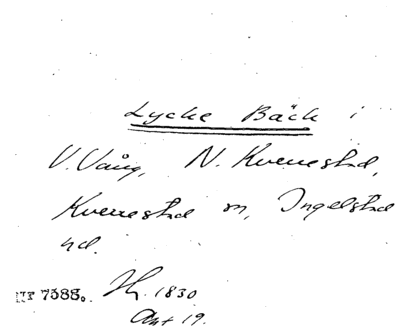 Lycke Bäck i
V. Vång, N. Kverrestad,
Kverrestad sn, Ingelstad
hd.
7388. Hs. 1830
Ant 19.